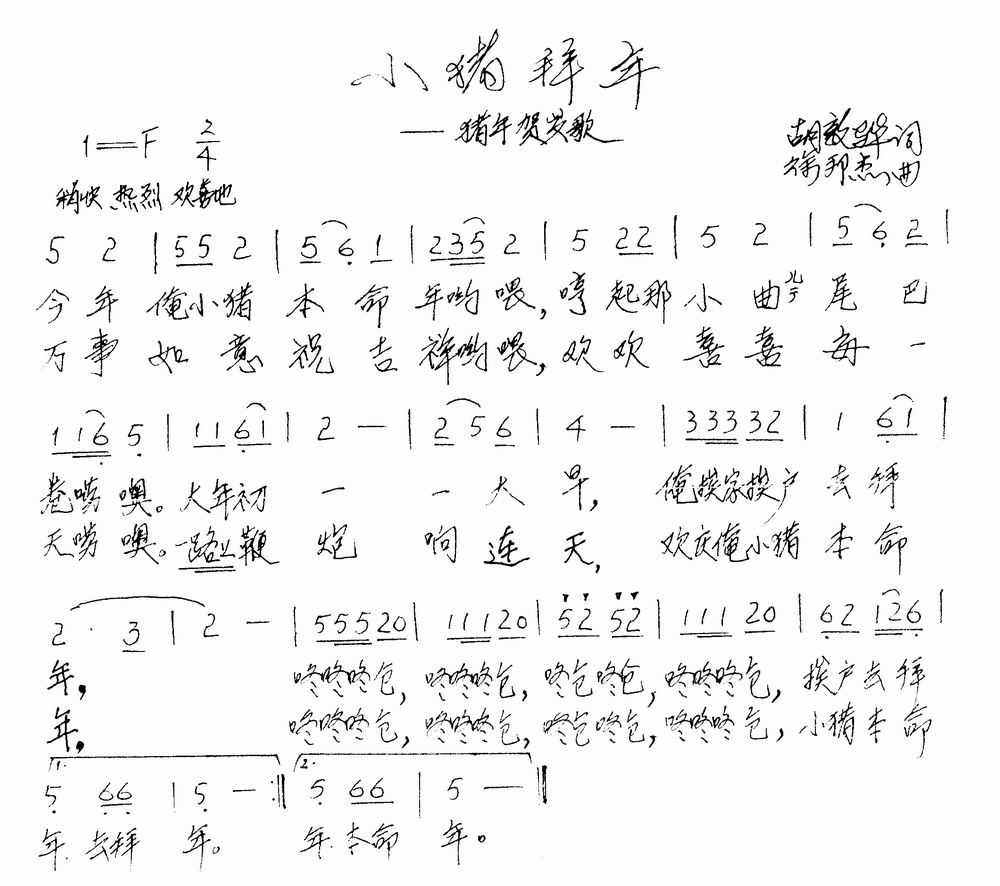 小猪拜年
—— 猪年贺岁歌
1=F 2/4
胡敦华词
徐邦杰曲
稍快 热烈 欢喜地
5 2 | 55 2 | 5 6 1 | 235 2 | 5 22 | 5 2 | 5 6 2 |
今年 俺小猪 本命 年哟喂，哼起那 小曲儿 尾巴
万事 如意 祝吉 祥哟喂，欢欢 喜喜 每一
116 5 | 11 61 | 2 — | 2 5 6 | 4 — | 333 32 | 1 61 |
卷唠噢。大年初 一 一大 早， 俺挨家挨户 去拜
天唠噢。一路上鞭 炮 响连 天， 欢庆俺小猪 本命
2 · 3 | 2 — | 555 20 | 111 20 | 52 52 | 111 20 | 62 126 |
年， 咚咚咚仓，咚咚咚仓，咚仓咚仓，咚咚咚仓，挨户去拜
年， 咚咚咚仓，咚咚咚仓，咚仓咚仓，咚咚咚仓，小猪本命
1. 2.
5 66 | 5 — :|| 5 66 | 5 — ||
年.去拜 年。 年.本命 年。